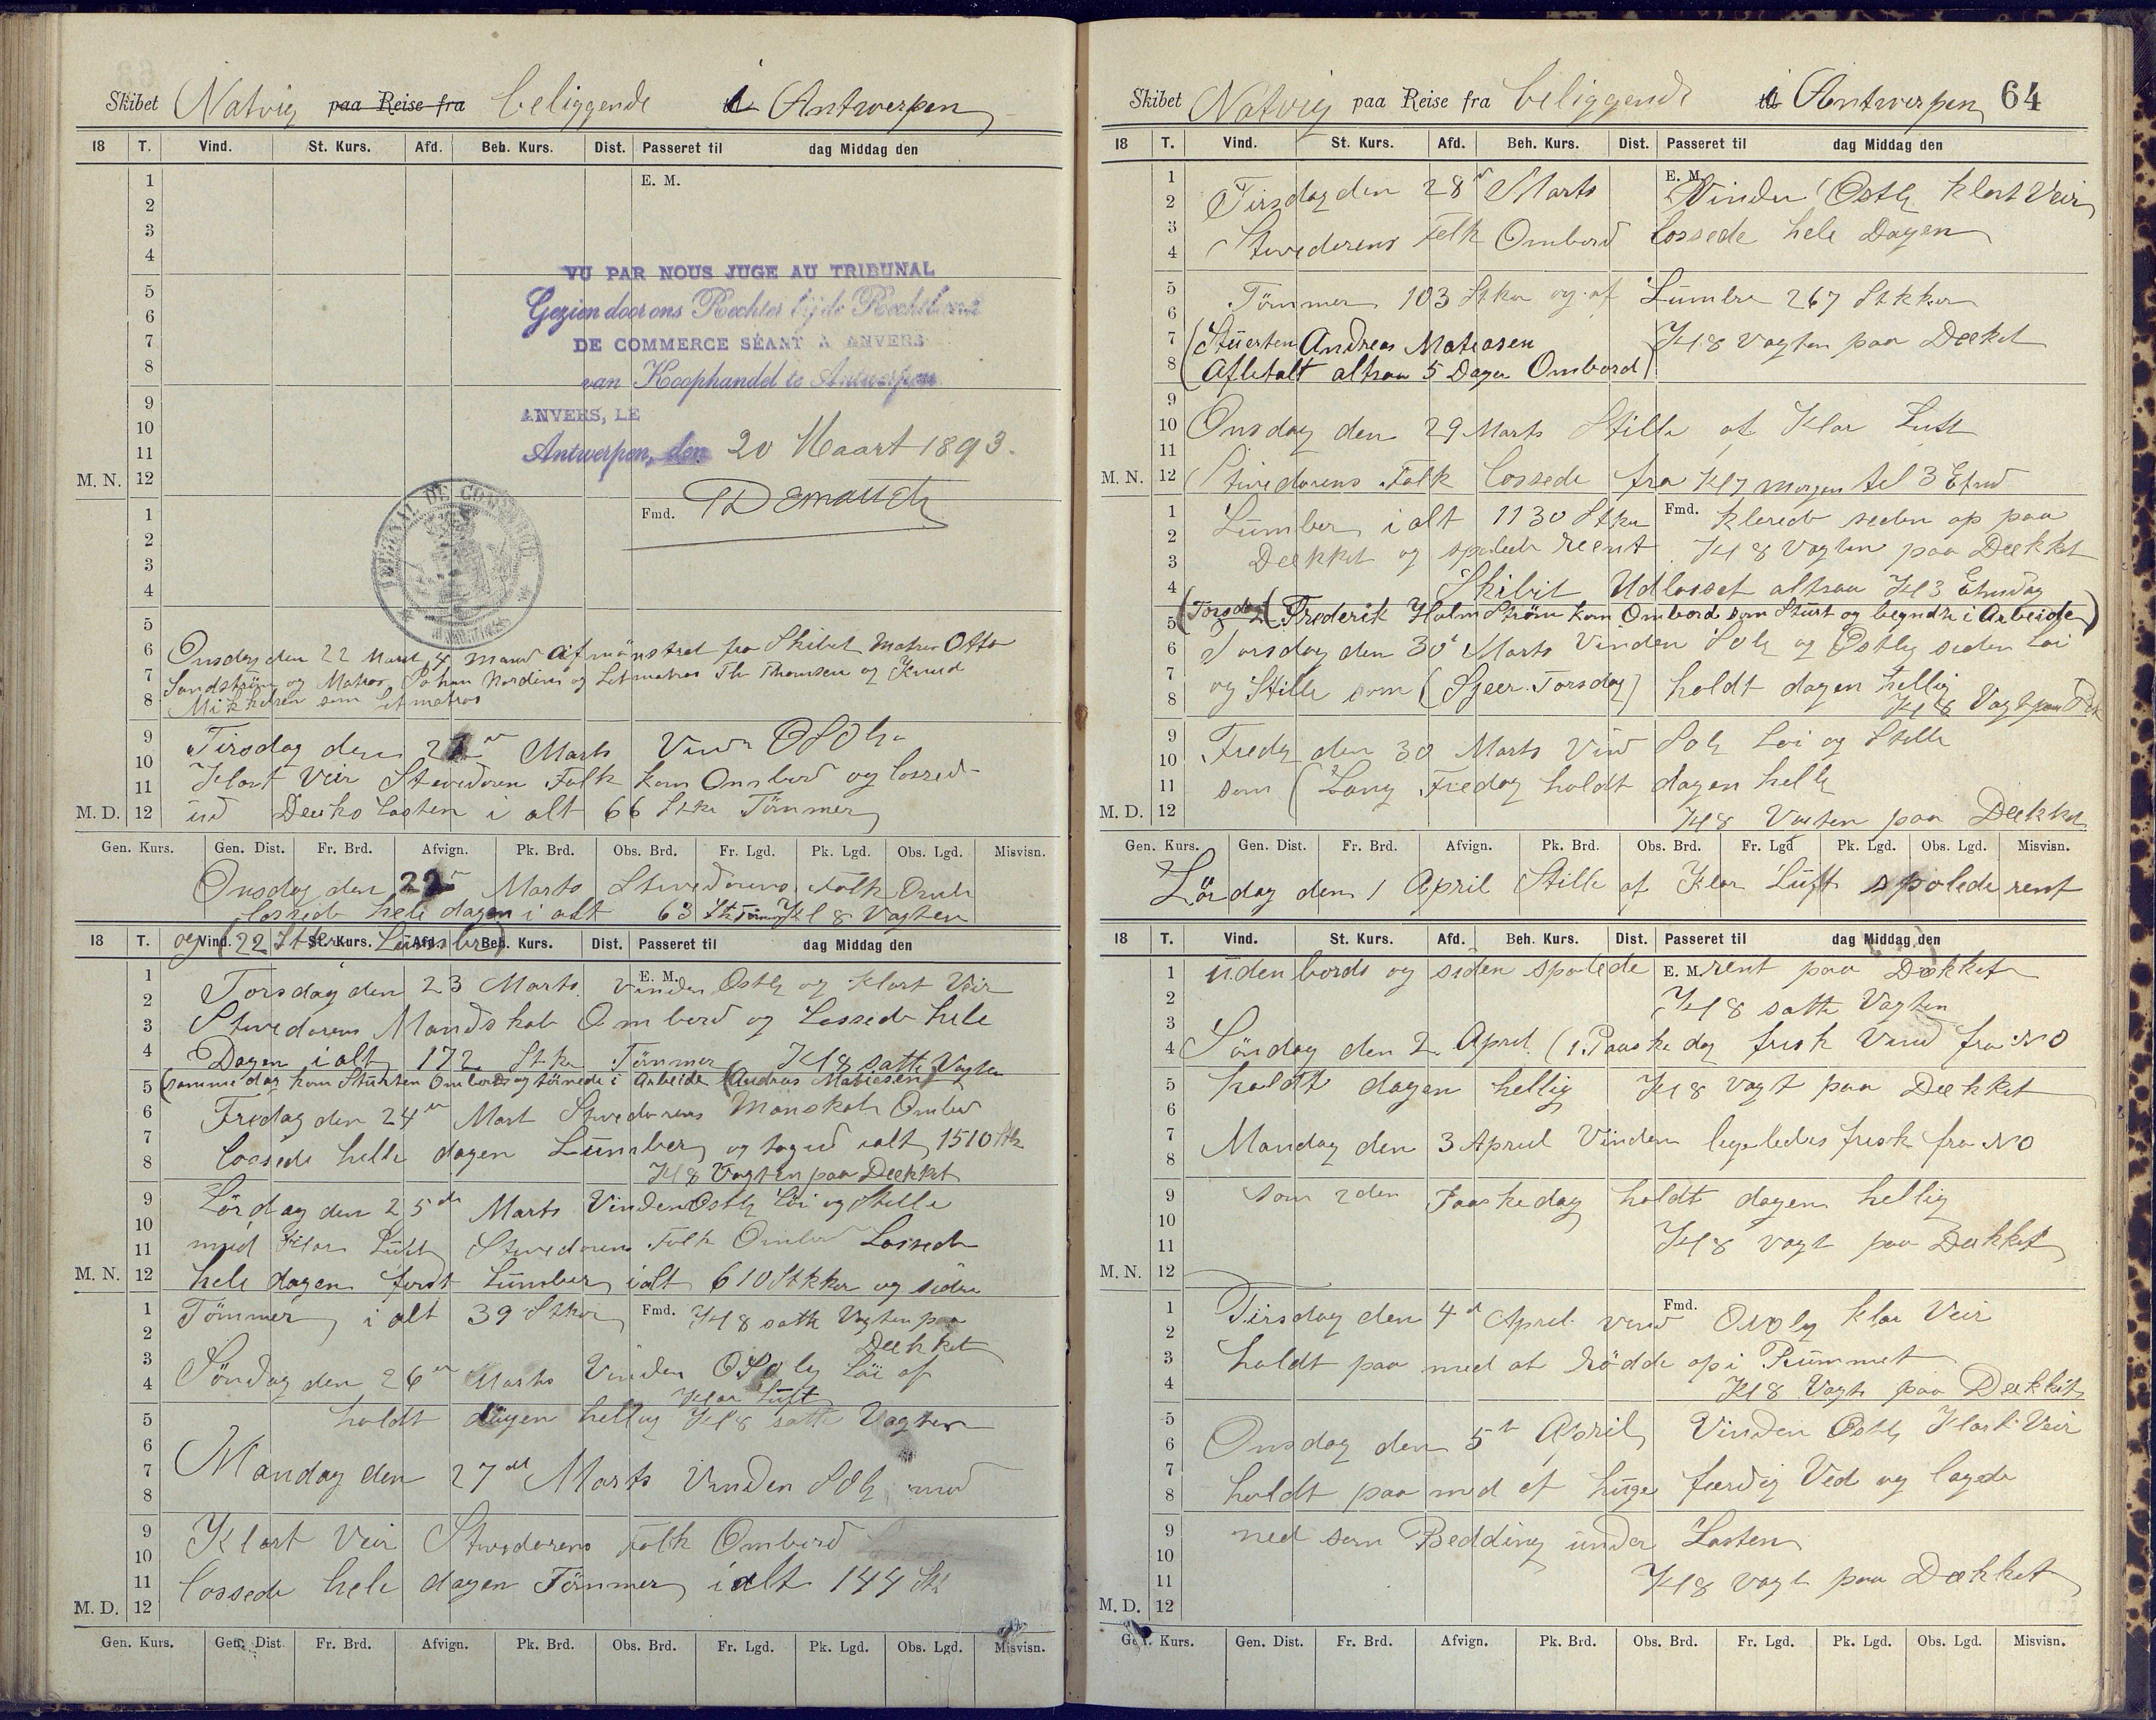 Skibet Natvig paa Reise fra beliggende i Antwerpen
18 T. Vind. St. Kurs. Afd. Beh. Kurs. Dist. Passeret til dag Middag den
1 E. M.
2
3
4
VU PAR NOUS JUGE AU TRIBUNAL
5
Gezien door ons Rechter bij de Rechtbank
6
7 DE COMMERCE SÉANT A ANVERS
8 van Koophandel te Antwerpen
9 ANVERS, LE
10
11 Antwerpen, den 20 Maart 1893.
M. N. 12
TRIBUNAL DE COMMERCE
1 Fmd.
2
3
4
5
6 Onsdag den 22 Marts 4 Mand afmönstret fra Skibet Matros Otto
7 Sandström og Matros Johan Nordins og Letmatros Th Thomsen og Knud
8 Mikkelsen som Letmatros
9 Tirsdag den Marts Vind OSOlig
10
11 Klart Veir Stevedoren Folk kom Ombord og lossed
M. D. 12 ud Dækslasten i alt 66 Stkr Tömmer
Gen. Kurs. Gen. Dist. Fr. Brd. Afvign. Pk. Brd. Obs. Brd. Fr. Lgd. Pk. Lgd. Obs. Lgd. Misvisn.
Onsdag den 22 Marts Stevedorens Folk Omb
lossede hele dagen i alt 63 Stk Tömmer Kl 8 Vagten
18 T. Vind. St. Kurs. Afd. Beh. Kurs. Dist. Passeret til dag Middag den
og 22 Stkr Lumber
1 Torsdag den 23 Marts E. M. Vinden Östlg og Klart Veir
2
3 Stevedorens Mandskab Ombord og Lossede hele
4 Dagen i alt 172 Stkr Tömmer Kl 8 satte Vagten
5 (samme dag kom Stuerten Ombord og törnede i Arbeide (Andreas Matiesen)
6 Fredag den 24 Mart Stevedorens Manskab Ombord
7 lossede helle dagen Lumber og tog ud ialt 1510 Stk
8 Kl 8 Vagten paa Dækket
9 Lördag den 25de Marts Vinden Östlg Löi og Stille
10
11 med Klar Luft Stevedorens Folk Ombord Lossede
M. N. 12 hele dagen först Lumber ialt 610 Stkker og siden
1 Tömmer i alt 39 Stkr Fmd. Kl 8 satte Vagten paa
2 Dækket
3 Söndag den 26 Marts Vinden OSOlig Löi og
4 Klar Luft
5 holdt dagen hellig Kl 8 satte Vagten
6
7 Mandag den 27de Marts Vinden SOlg med
8
9 Klart Veir Stevedorens Folk Ombord
10
11 lossede hele dagen Tömmer ialt 144 Stk
M. D. 12
Gen. Kurs. Gen. Dist. Fr. Brd. Afvign. Pk. Brd. Obs. Brd. Fr. Lgd. Pk. Lgd. Obs. Lgd. Misvisn.
Skibet Natvig paa Reise fra beliggende i Antwerpen 64
18 T. Vind. St. Kurs. Afd. Beh. Kurs. Dist. Passeret til dag Middag den
1 E. M.
2 Tirsdag den 28 Marts Vinden Östlg klart Veir
3
4 Stevedorens Folk Ombord lossede hele Dagen
5 Tömmer 103 Stkr og af Lumber 267 Stkker
6
7 (Stuerten Andreas Matiasen Kl 8 Vagten paa Dækket
8 (Afbetalt altsaa 5 Dage Ombord)
9
10 Onsdag den 29 Marts Stille og Klar Luft
11
M. N. 12 Stevedorens Folk lossede fra Kl 7 Morgen til 3 Etmd
1 Lumber i alt 1130 Stkr Fmd. klarede siden op paa
2
3 Dækket og spolede reent Kl 8 Vagten paa Dækket
4 Skibit Udlosset altsaa Kl 3 Etmidag
5 (Torsdag (Frederik Holmström kom Ombord som Stuert og begyndte i Arbeide)
6 Torsdag den 30 Marts Vinden SOlg og Östlig siden Löi
7
8 og Stille som (Sjeer Torsdag) holdt dagen hellig Kl 8 Vagt paa Dæk
9 Fredg den 30 Marts Vind SOlg Löi og Stille
10
11 som (Lang Fredag holdt dagen hellg
M. D. 12 Kl 8 Vagten paa Dækket
Gen. Kurs. Gen. Dist. Fr. Brd. Afvign. Pk. Brd. Obs. Brd. Fr. Lgd Pk. Lgd. Obs. Lgd. Misvisn.
Lördag den 1 April Stille og Klar Luft spolede rent
18 T. Vind. St. Kurs. Afd. Beh. Kurs. Dist. Passeret til dag Middag den
1 uden bords og siden spolede E. M. rent paa Dækket
2 Kl 8 satte Vagten
3
4 Söndag den 2. April (1. Paaske dag frisk Vind fra NO
5 holdt dagen hellig Kl 8 vagt paa Dækket
6
7 Mandag den 3 April Vinden ligeledes frisk fra NO
8
9 som 2den Paaskedag holdt dagen hellig
10
11 Kl 8 vagt paa Dækket
M. N. 12
1 Tirsdag den 4d April vind Fmd. ONOlg Klar Veir
2
3 holdt paa med at rödde op i Rummet
4 Kl 8 Vagt paa Dækket
5
6 Onsdag den 5te April Vinden Östlg Klart Veir
7
8 holdt paa med at huge færdig Ved og lagde
9 ned som Bedding under Lasten
10
11 Kl 8 vagt paa Dækket
M. D. 12
Gen. Kurs. Gen. Dist. Fr. Brd. Afvign. Pk. Brd. Obs. Brd. Fr. Lgd. Pk. Lgd. Obs. Lgd. Misvisn.